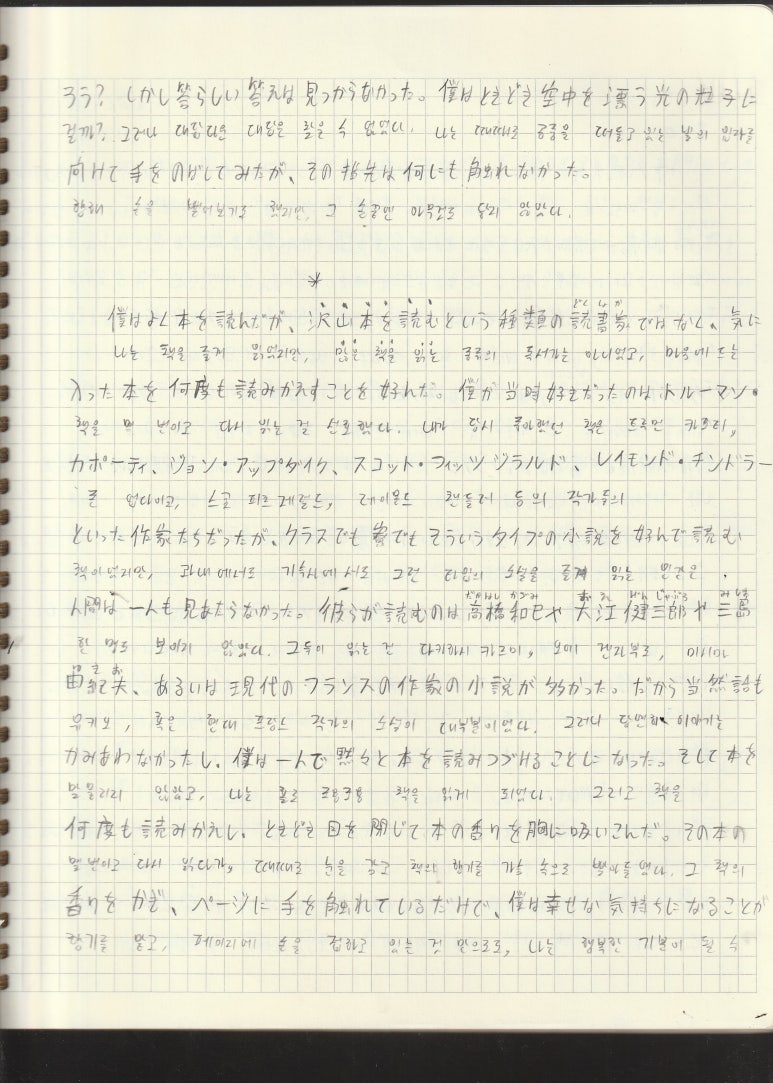 ろう? しかし答らしい答えは見つからなかった。僕はときどき空中を漂う光の粒子に
걸까? 그러나 대답다운 대답은 찾을 수 없었다. 나는 때때로 공중을 떠돌고 있는 빛의 입자를
向けて手をのばしてみたが、その指先は何にも触れなかった。
향해 손을 뻗어보기도 했지만, 그 손끝엔 아무것도 닿지 않았다.
*
どくしょか
僕はよく本を読んだが、沢山本を読むという種類の読書家ではなく、気に
나는 책을 즐겨 읽었지만, 많은 책을 읽는 종류의 독서가는 아니었고, 마음에 드는
入った本を何度も読みかえすことを好んだ。僕が当時好きだったのはトルーマン・
책을 몇 번이고 다시 읽는 걸 선호했다. 내가 당시 좋아했던 책은 트루먼 카포티,
カポーティ、ジョン・アップダイク、スコット・フィッツジラルド、レイモンド・チンドラー
존 업다이크, 스콧 피츠제럴드, 레이몬드 챈들러 등의 작가들의
といった作家たちだったが、クラスでも寮でもそういうタイプの小説を好んで読む
책이었지만, 과내에서도 기숙사에서도 그런 타입의 소설을 즐겨 읽는 인간은
おおえ けんざぶろう みしま
人間は一人も見あたらなかった。彼らが読むのは高橋和巳や大江健三郎や三島
한 명도 보이지 않았다. 그들이 읽는 건 다카하시 카즈미, 오에 겐자부로, 미시마
ゆきお
由紀夫、あるいは現代のフランスの作家の小説が多かった。だから当然話も
유키오, 혹은 현대 프랑스 작가의 소설이 대부분이었다. 그러니 당연히 이야기는
かみあわなかったし、僕は一人で黙々と本を読みつづけることになった。そして本を
맞물리지 않았고, 나는 홀로 조용조용 책을 읽게 되었다. 그리고 책을
何度も読みかえし、ときどき目を閉じて本の香りを胸に吸いこんだ。その本の
몇번이고 다시 읽다가, 때때로 눈을 감고 책의 향기를 가슴 속으로 빨아들였다. 그 책의
香りをかぎ、ページに手を触れているだけで、僕は幸せな気持ちになることが
향기를 맡고, 페이지에 손을 접하고 있는 것 만으로도, 나는 행복한 기분이 될 수